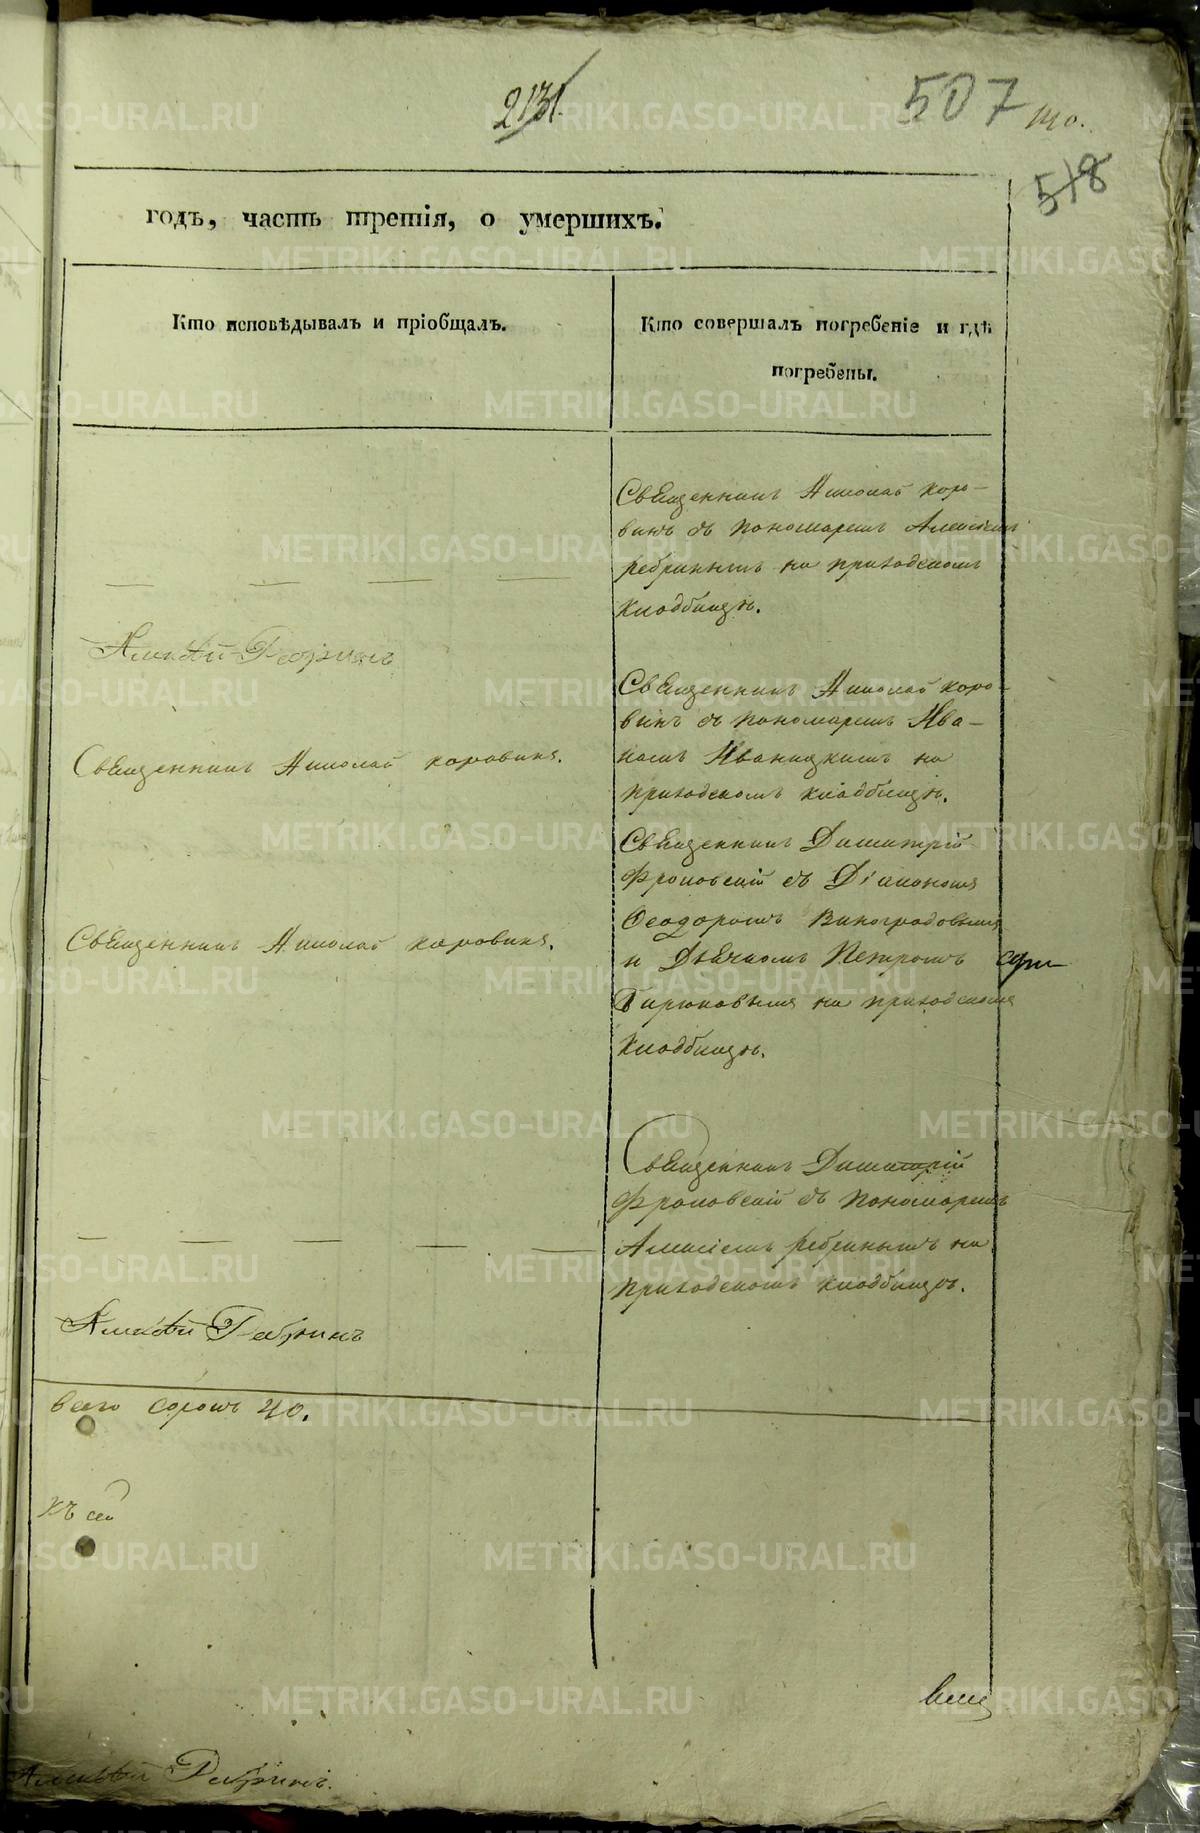 2131
507
що.
518
годъ, часть третія, о умершихъ.
Кто исповѣдывалъ и пріобщалъ.
Кто совершалъ погребеніе и гдѣ
погребены.
Священникъ Николай Коро-
винъ съ пономаремъ Алексіемъ
Ребринымъ на приходскомъ
кладбищѣ.
Алексѣй Ребринъ
Священникъ Николай Коро-
винъ съ пономаремъ Ива-
номъ Иваницкимъ на
приходскомъ кладбищѣ.
Священникъ Николай Коровинъ.
Священникъ Димитрій
Фроловскій съ Діакономъ
Ѳеодоромъ Виноградовымъ
и Дьячкомъ Петромъ
Бирюковымъ на приходскомъ
кладбищѣ.
Священникъ Николай Коровинъ.
Священникъ Димитрій
Фроловскій съ пономаремъ
Алексіемъ Ребринымъ на
приходскомъ кладбищѣ.
Алексѣй Ребринъ
всего сорокъ 40.
Къ сей
Алексѣй Ребринъ.
METRIKI.GASO-URAL.RU